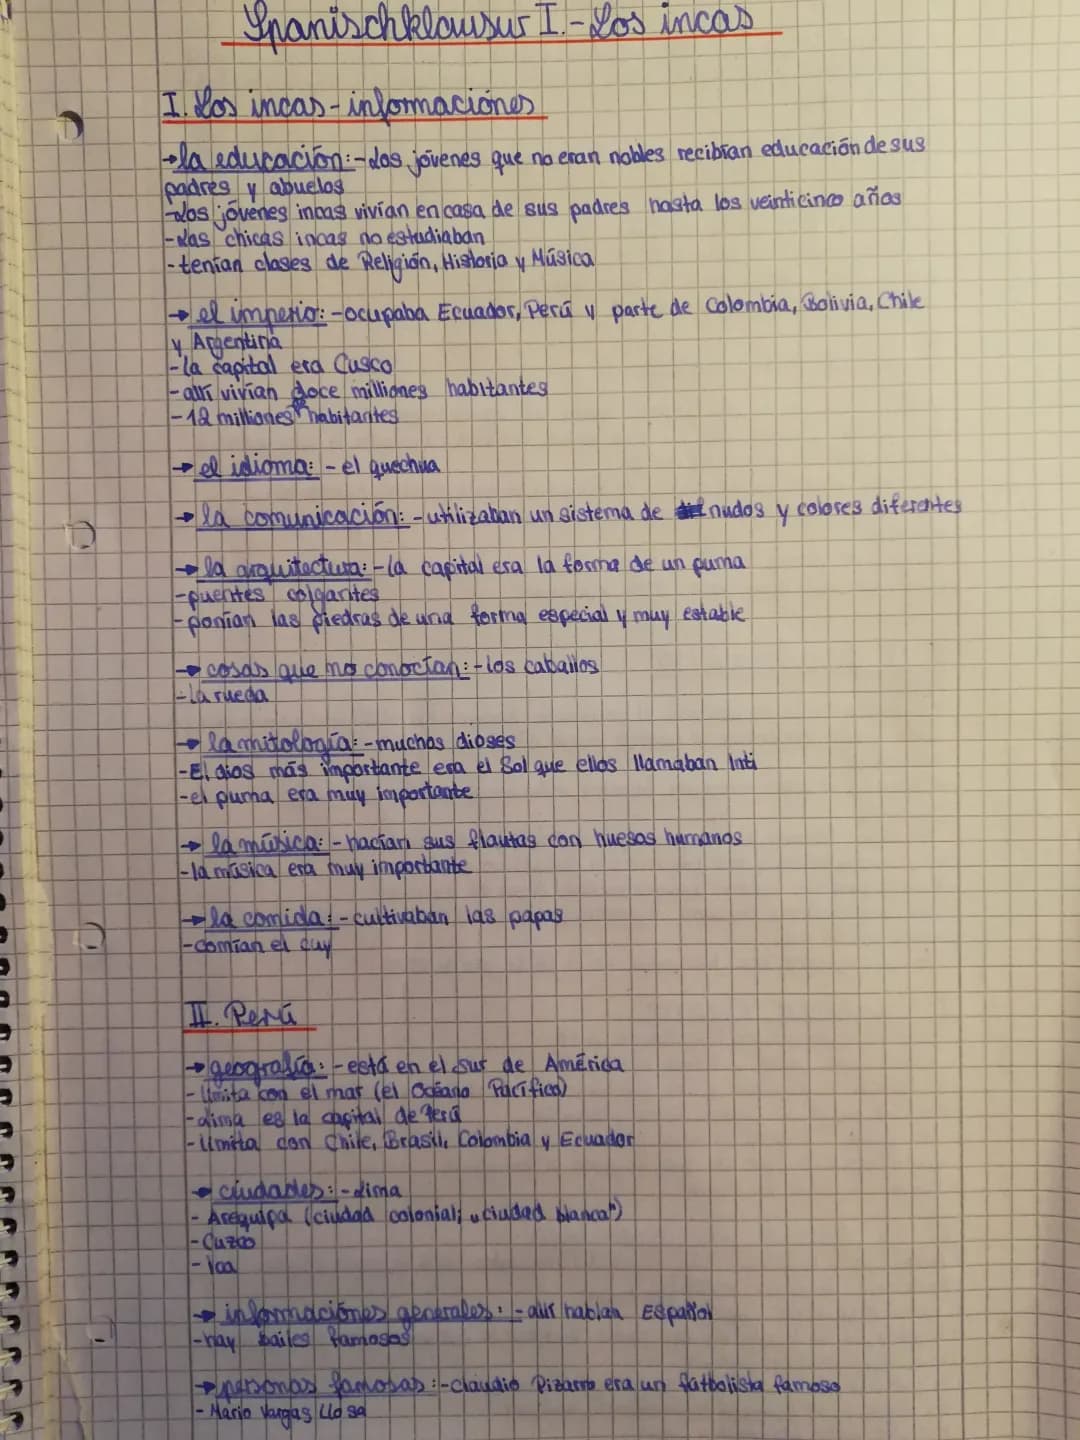 Spanischklausur I.-Los incas
I. Los incas-informaciónes
→la educación:-Los jóvenes que no eran nobles recibían educación de sus
padres y abuelos
-Los jóvenes incas vivían en casa de sus padres hasta los veinticinco años
-Las chicas incas no estudiaban
-tenían clases de Religión, Historia y Música
→el imperio:-ocupaba Ecuador, Perú y parte de Colombia, Bolivia, Chile
y Argentina
-la capital era Cusco
-allí vivían doce milliones habitantes
-12 milliones habitantes
→el idioma:-el quechua
→la comunicación:-utilizaban un sistema de nudos y colores diferentes
→la arquitectura:-la capital era la forma de un puma
-puentes colgantes
-ponían las piedras de una forma especial y muy estable
→cosas que no conocían:-los caballos
-la rueda
→la mitología:-muchos dioses
-El dios más importante era el Sol que ellos llamaban Inti
-el puma era muy importante
→la música:-hacían sus flautas con huesos humanos
-la música era muy importante
→la comida:-cultivaban las papas
-comían el cuy
II. Perú
→geografía:-está en el sur de América
-limita con el mar (el Océano Pacífico)
-Lima es la capital de Perú
-limita con Chile, Brasil, Colombia y Ecuador
→ciudades:-Lima
-Arequipa (ciudad colonial; „ciudad blanca")
-Cuzco
-Ica
→informaciónes generales:-allí hablan Español
-hay bailes famosos
→personas famosas:-Claudio Pizarro era un futbolista famoso
-Mario Vargas Llosa